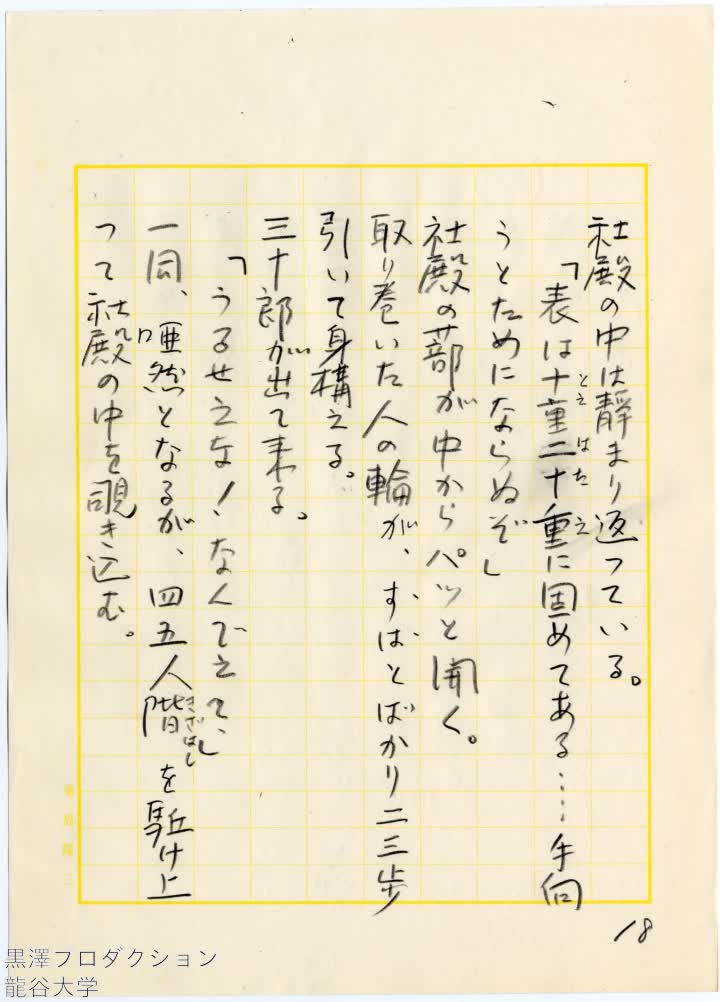 社殿の中は静まり返っている。
「表は十重二十重に固めてある……手向
とえはたえ
うとためにならぬぞ」
社殿の蔀が中からパッと開く。
取り巻いた人の輪が、ずばとばかり二三歩
引いて身構える。
三十郎が出て来る。
「うるせえな!なんでえて、」
一同、唖然となるが、四五人階を駈け上
きざはし
って社殿の中を覗き込む。
18
黒澤フロダクション
龍谷大学